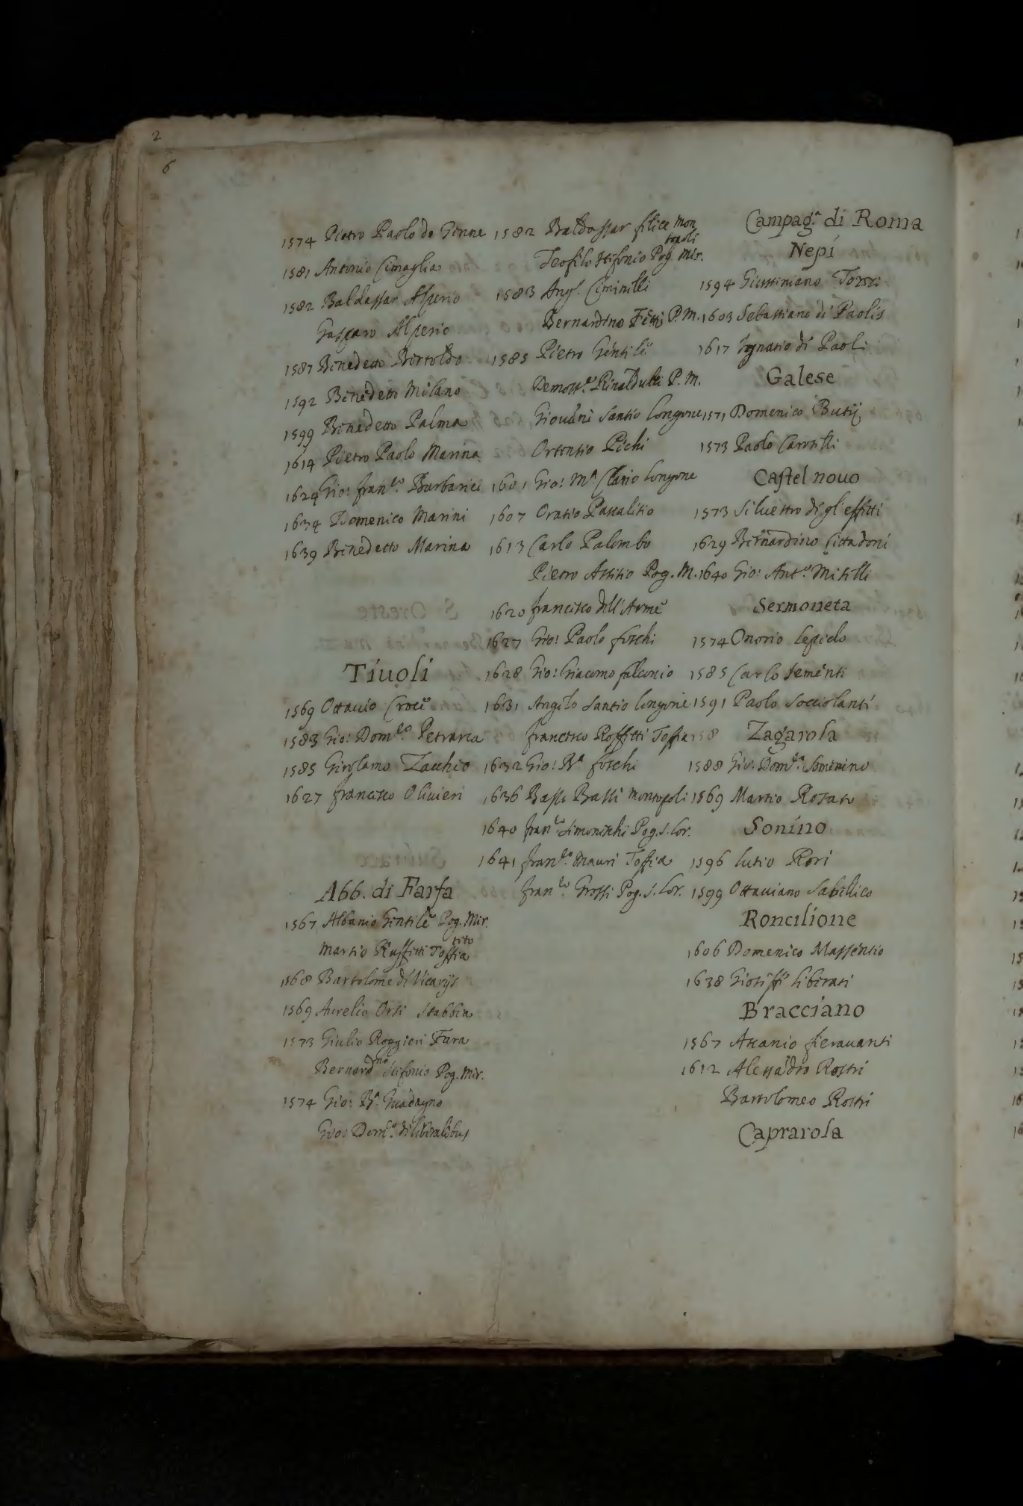 2
6
1574 Pietro Paolo de Genna
1581 Antonio Cimaglia
1582 Baldassar Alperio
Gasparo Alperio
1587 Benedetto Bertoldo
1592 Benedetto Milano
1599 Benedetto Palma
1614 Pietro Paolo Marina
1624 Gio: Fran.co Barbarici
1634 Domenico Marini
1639 Benedetto Marina
Tiuoli
1569 Ottauio Croce
1583 Gio: Dom.co Petrarca
1585 Girolamo Zacchio
1627 francesco Oliuieri
Abb. di Farfa
1567 Albanio Gentile Pog. Mir.
Martio Ruffetti Toffia
1568 Bartolomeo di Vicarijs
1569 Aurelio Orsi
1573 Giulio Roggieri Fara
Bernardno Stifonio Pog. Mir.
1574 Gio: Ba Guadagno
Gio: Dom.co
1582 Baldassar felice Mon
topoli
Teofilo Stifonio Pog. Mir.
1583 Ang. Ciminelli
Bernardino P. M.
1585 Pietro Gentile
Rinalducci P. M.
Giouani Santio Longone
Ortentio Pichi
1601 Gio: Ma Longone
1607 Oratio Pattalitio
1613 Carlo Palombo
Pietro Attitio Pog. M.
1620 francesco dell'Arme
1627 Gio: Paolo foschi
1628 Gio: Giacomo falconio
1631 Angelo Santio longone
francesco Roffetti Toffia
1632 Gio: Ba foschi
1636 Basso Bassi Montopoli
1640 fran.co Simonechi Pog. S. Lor.
1641 fran.co Mauri Toffia
fran.co Grossi Pog. S. Lor.
Campag.a di Roma
Nepi
1594 Giustiniano Torri
1603 Sebastiano di Paolis
1617 Ignatio di Paoli
Galese
1571 Domenico Butij
1573 Paolo Carosi
Castel nouo
1573 Siluestro de gl'effetti
1629 Bernardino Cittadoni
1640 Gio: Ant.o Mitelli
Sermoneta
1574 Onorio Lepido
1585 Carlo Sementi
1591 Paolo Socciolanti
Zagarola
158
1588 Gio: Dom.co Sonnino
1569 Martio Rosato
Sonino
1596 Lutio Rori
1599 Ottauiano Sabellico
Roncilione
1606 Domenico Massentio
1638 Gioseffo liberati
Bracciano
1567 Ascanio fierauanti
1612 Alessandro Rostri
Bartolomeo Rostri
Caprarola